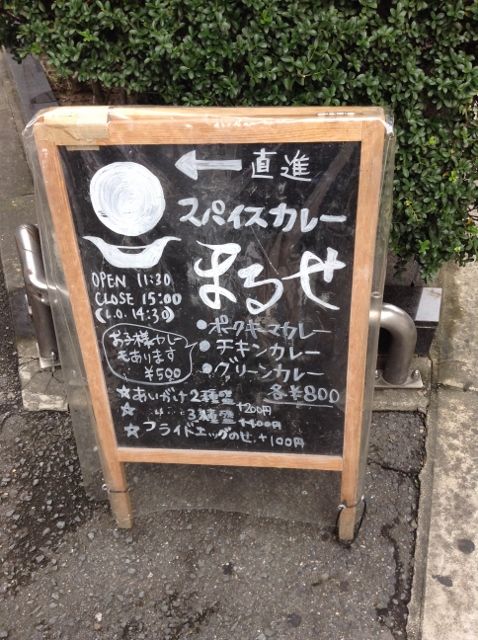 ← 直進
スパイスカレー
まるせ
OPEN 11:30
CLOSE 15:00
(L.O. 14:30)
・ポークキーマカレー
・チキンカレー
・グリーンカレー
各¥800
お子様カレー
もあります
¥500
★あいがけ2種盛 +200円
★ 〃 3種盛 +400円
★フライドエッグのせ +100円